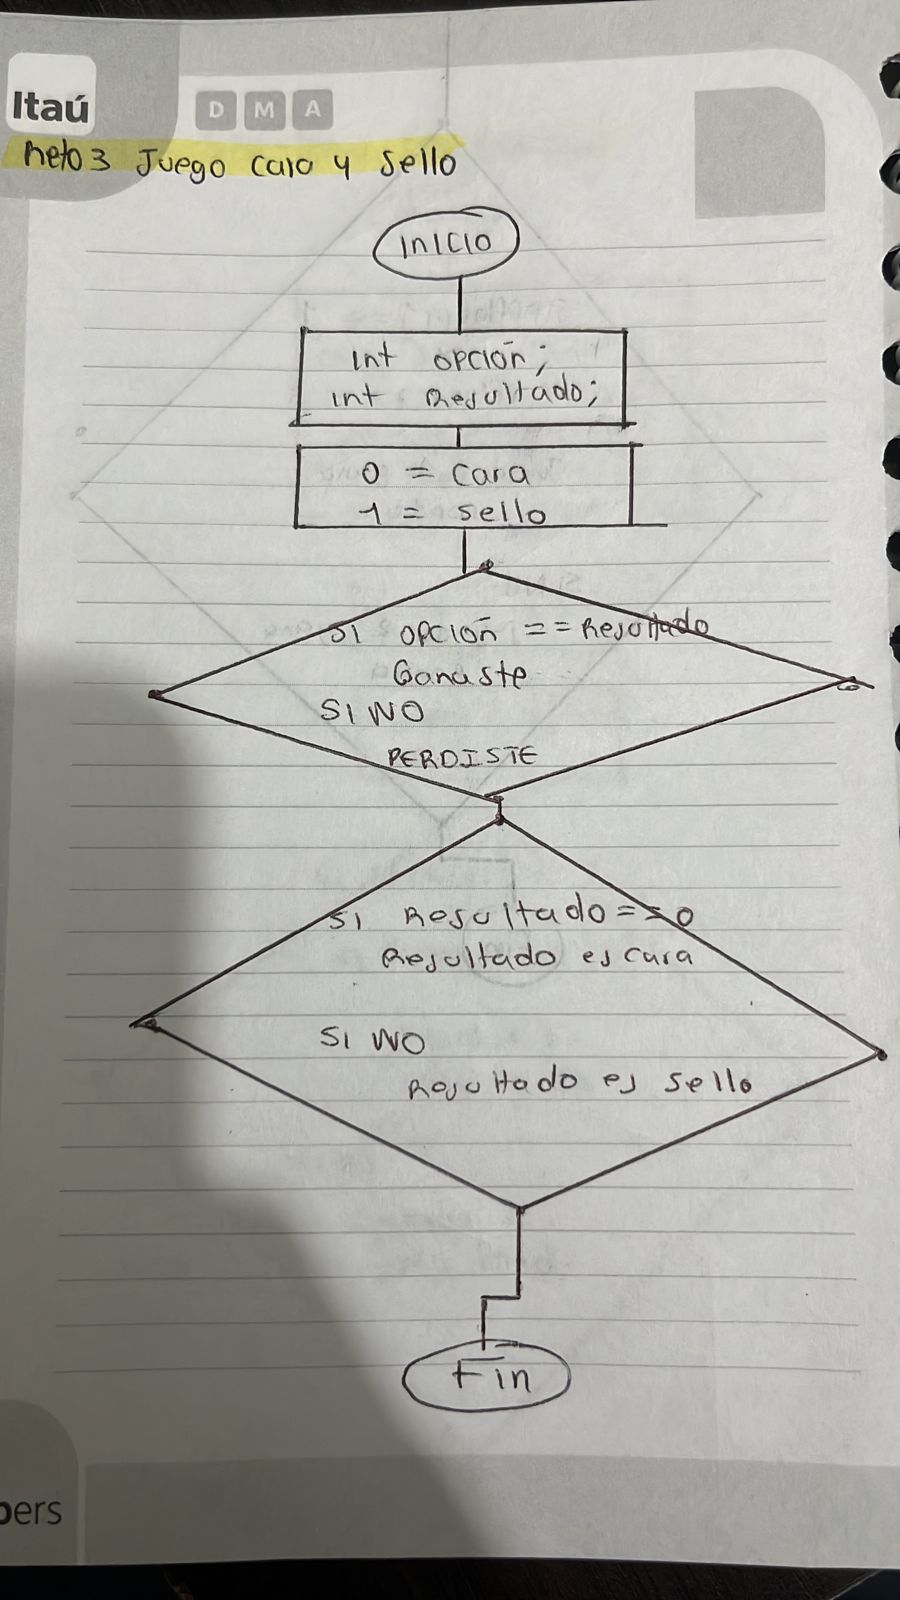 Itaú
D M A
Reto 3 Juego cara y sello
INICIO
int opción;
int Resultado;
0 = cara
1 = sello
SI opción == Resultado
Ganaste
SI NO
PERDISTE
SI Resultado == 0
Resultado es cara
SI NO
Resultado es sello
Fin
pers